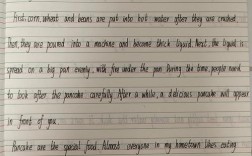 First, corn, wheat and beans are put into hot water after they are crushed.
Then, they are poured into a machine and become thick liquid. Next, the liquid is
spread on a big pan evenly, with fire under the pan. During the time, people need
to look after the pancake carefully. After a while, a delicious pancake will appear
in front of you.
Pancake are the special food. Almost everyone in my hometown likes eating